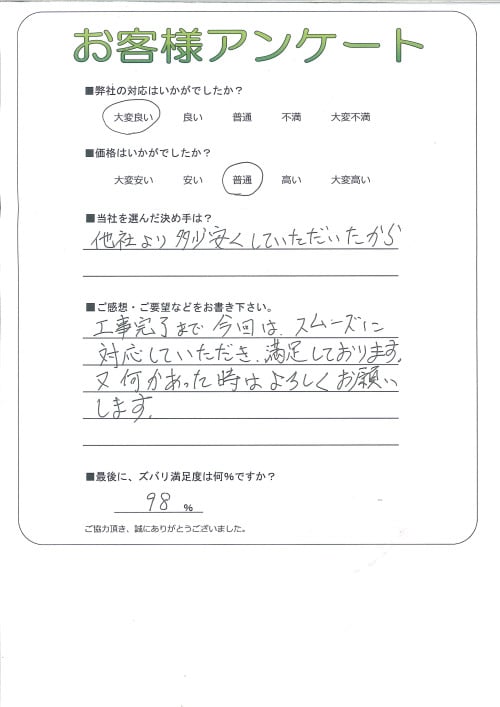 お客様アンケート
■弊社の対応はいかがでしたか？
大変良い 良い 普通 不満 大変不満
■価格はいかがでしたか？
大変安い 安い 普通 高い 大変高い
■当社を選んだ決め手は？
他社より多少安くしていただいたから
■ご感想・ご要望などをお書き下さい。
工事完了まで今回は、スムーズに
対応していただき、満足しております。
又何かあった時はよろしくお願い
します。
■最後に、ズバリ満足度は何％ですか？
98 %
ご協力頂き、誠にありがとうございました。